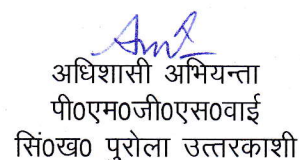 अधिशासी अभियन्ता
पी0एम0जी0एस0वाई
सिं0ख0 पुरोला उत्तरकाशी